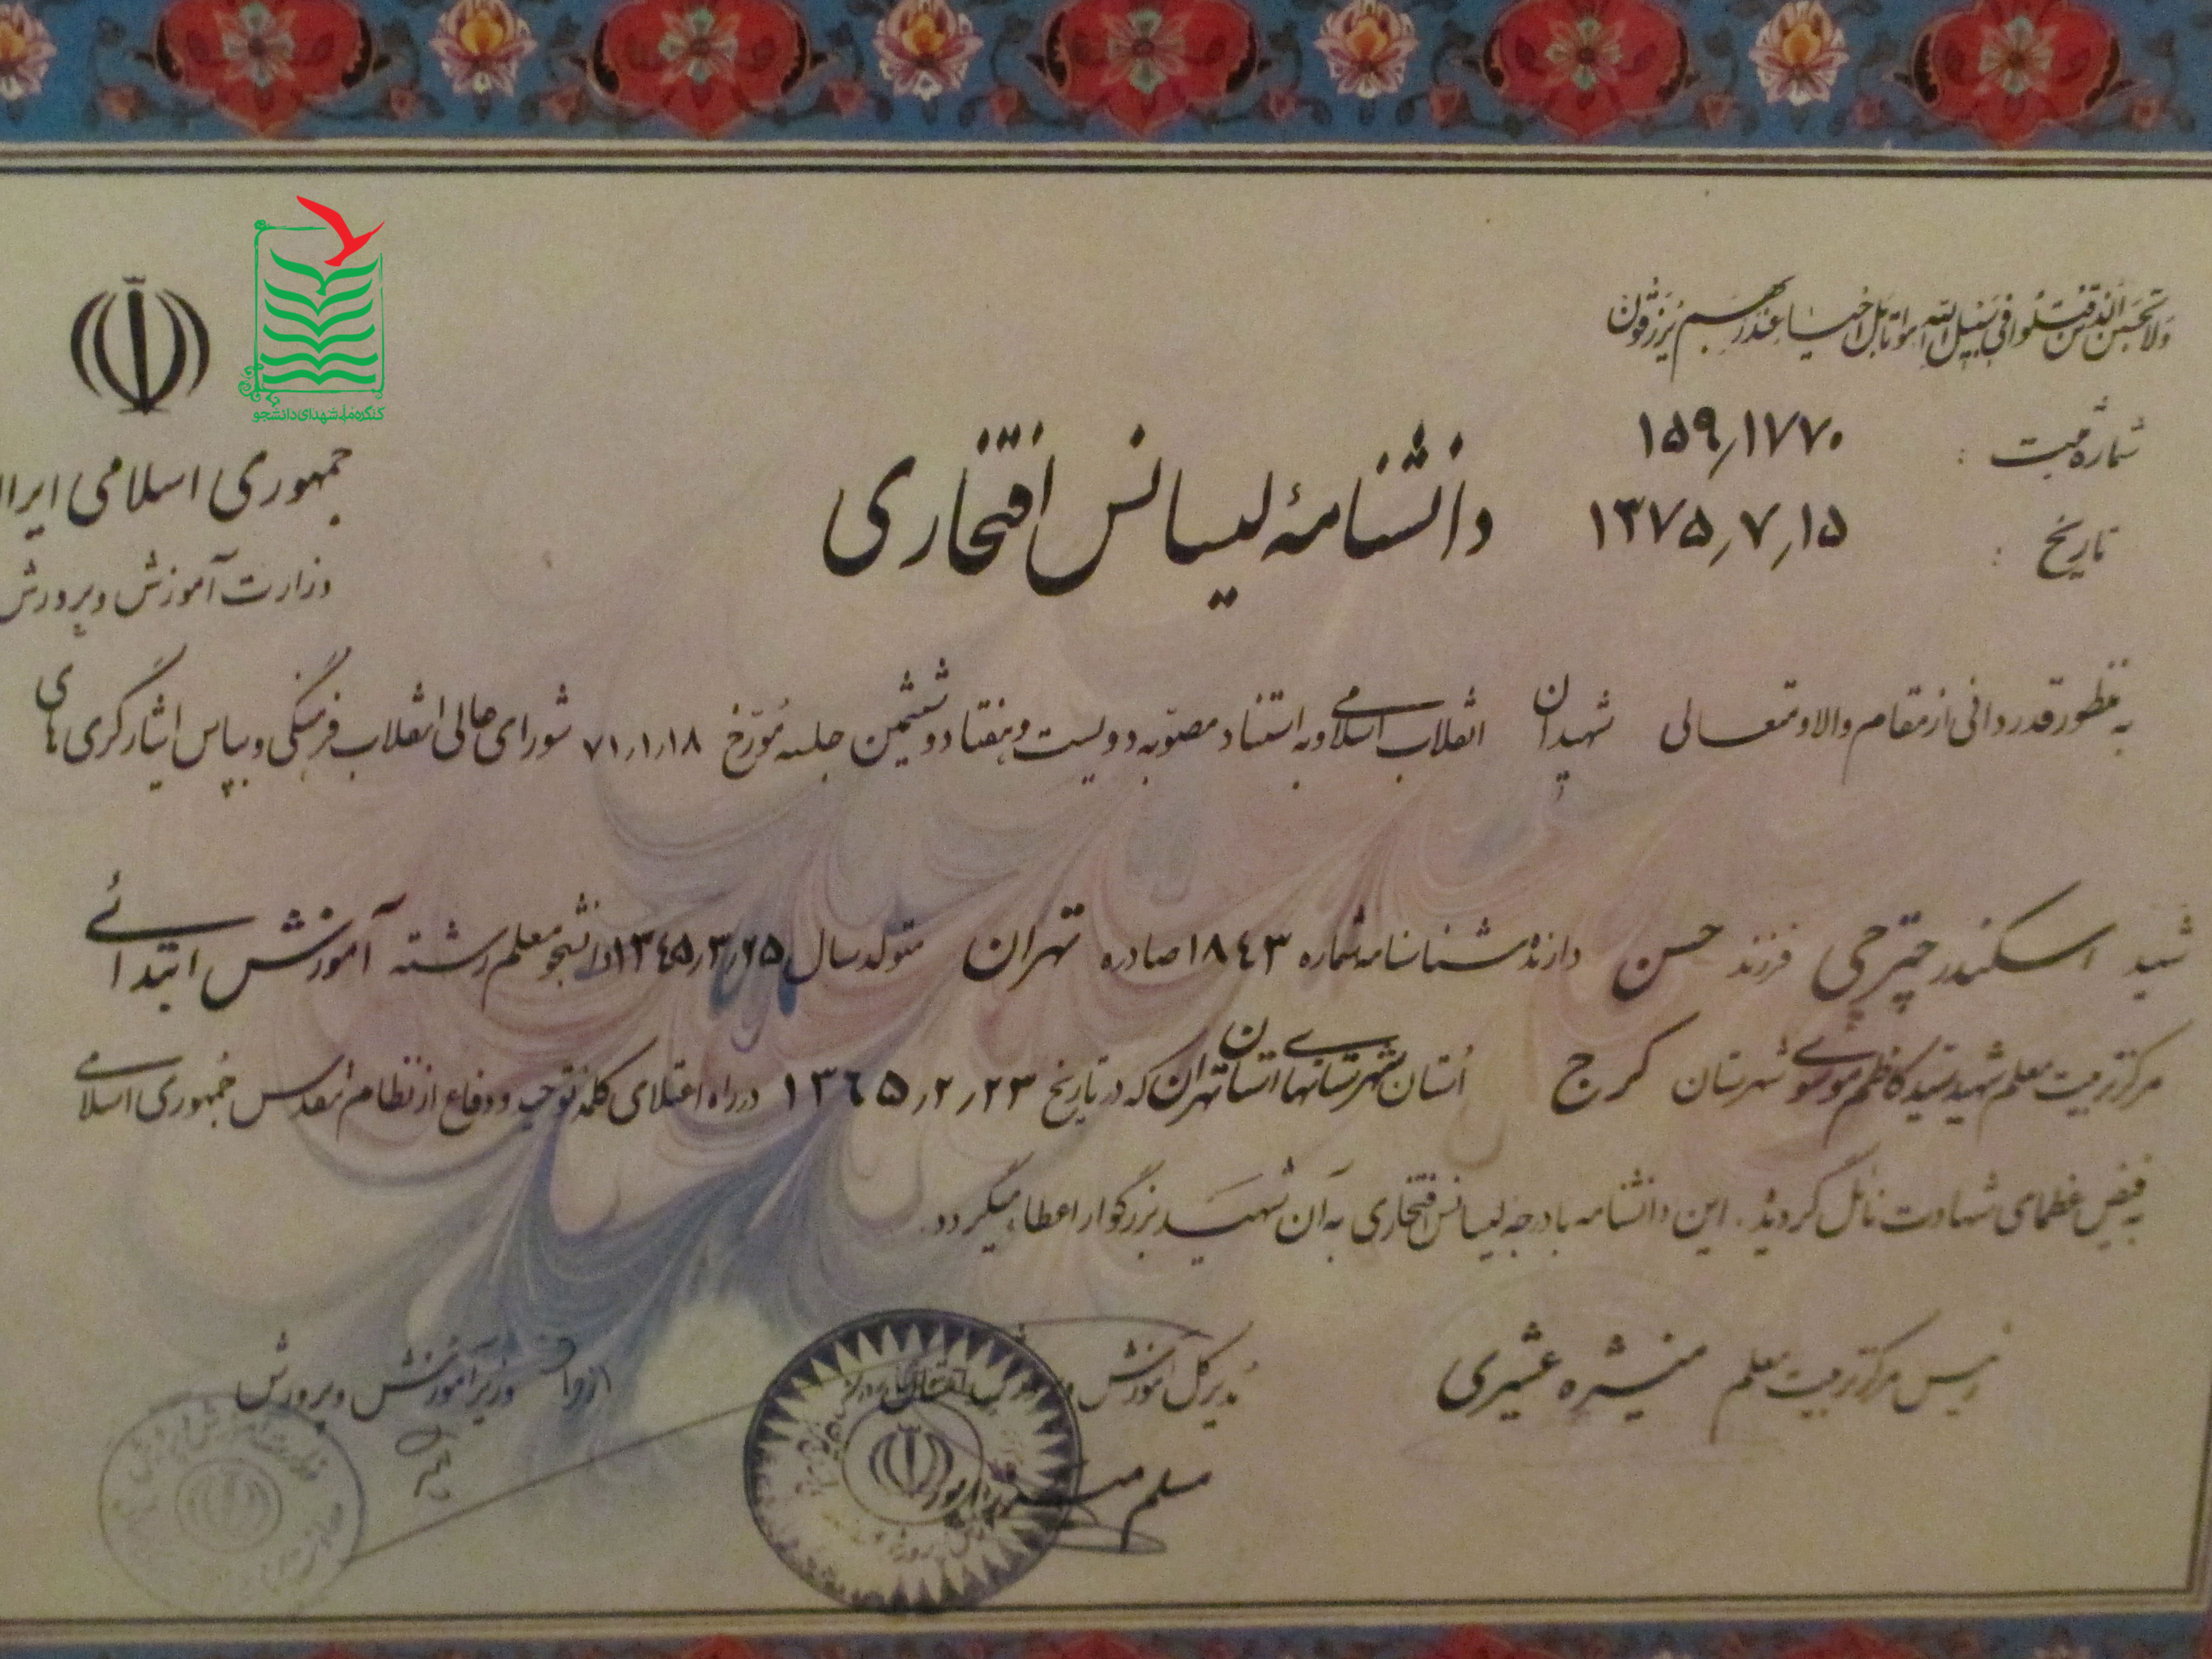 ولا تحسبن الذین قتلوا فی سبیل الله امواتا بل احیاء عند ربهم یرزقون
کنگره ملی شهدای دانشجو
جمهوری اسلامی ایرا
وزارت آموزش و پرورش
شماره ثبت : ۱۵۹٫۱۷۷۰
تاریخ : ۱۳۷۵٫۷٫۱۵
دانشنامهٔ لیسانس افتخاری
به منظور قدردانی از مقام والا و متعالی شهیدان انقلاب اسلامی و به استناد مصوّبه دویست و هفتاد و ششمین جلسه مُورّخ ۷۱٫۱٫۱۸ شورای عالی انقلاب فرهنگی و بپاس ایثارگری های
شهید اسکندر چترچی فرزند حسن دارندهٔ شناسنامه شماره ۱۸۴۳ صادره تهران متولد سال ۱۳۴۵٫۳٫۲۵ دانشجو معلم رشته آموزش ابتدائی
مرکز تربیت معلم شهید سید کاظم موسوی شهرستان کرج اُستان شهرستانهای استان تهران که در تاریخ ۱۳۶۵٫۲٫۲۳ در راه اعتلای کلمه توحید و دفاع از نظام مقدس جُمهوری اسلامی
به فیض عظمای شهادت نائل گردید. این دانشنامه با درجه لیسانس افتخاری به آن شهید بزرگوار اعطاء میگردد.
رئیس مرکز تربیت معلم منیژه عشیری
مُدیر کل آموزش و پرورش
مسلم
از طرف وزیر آموزش و پرورش